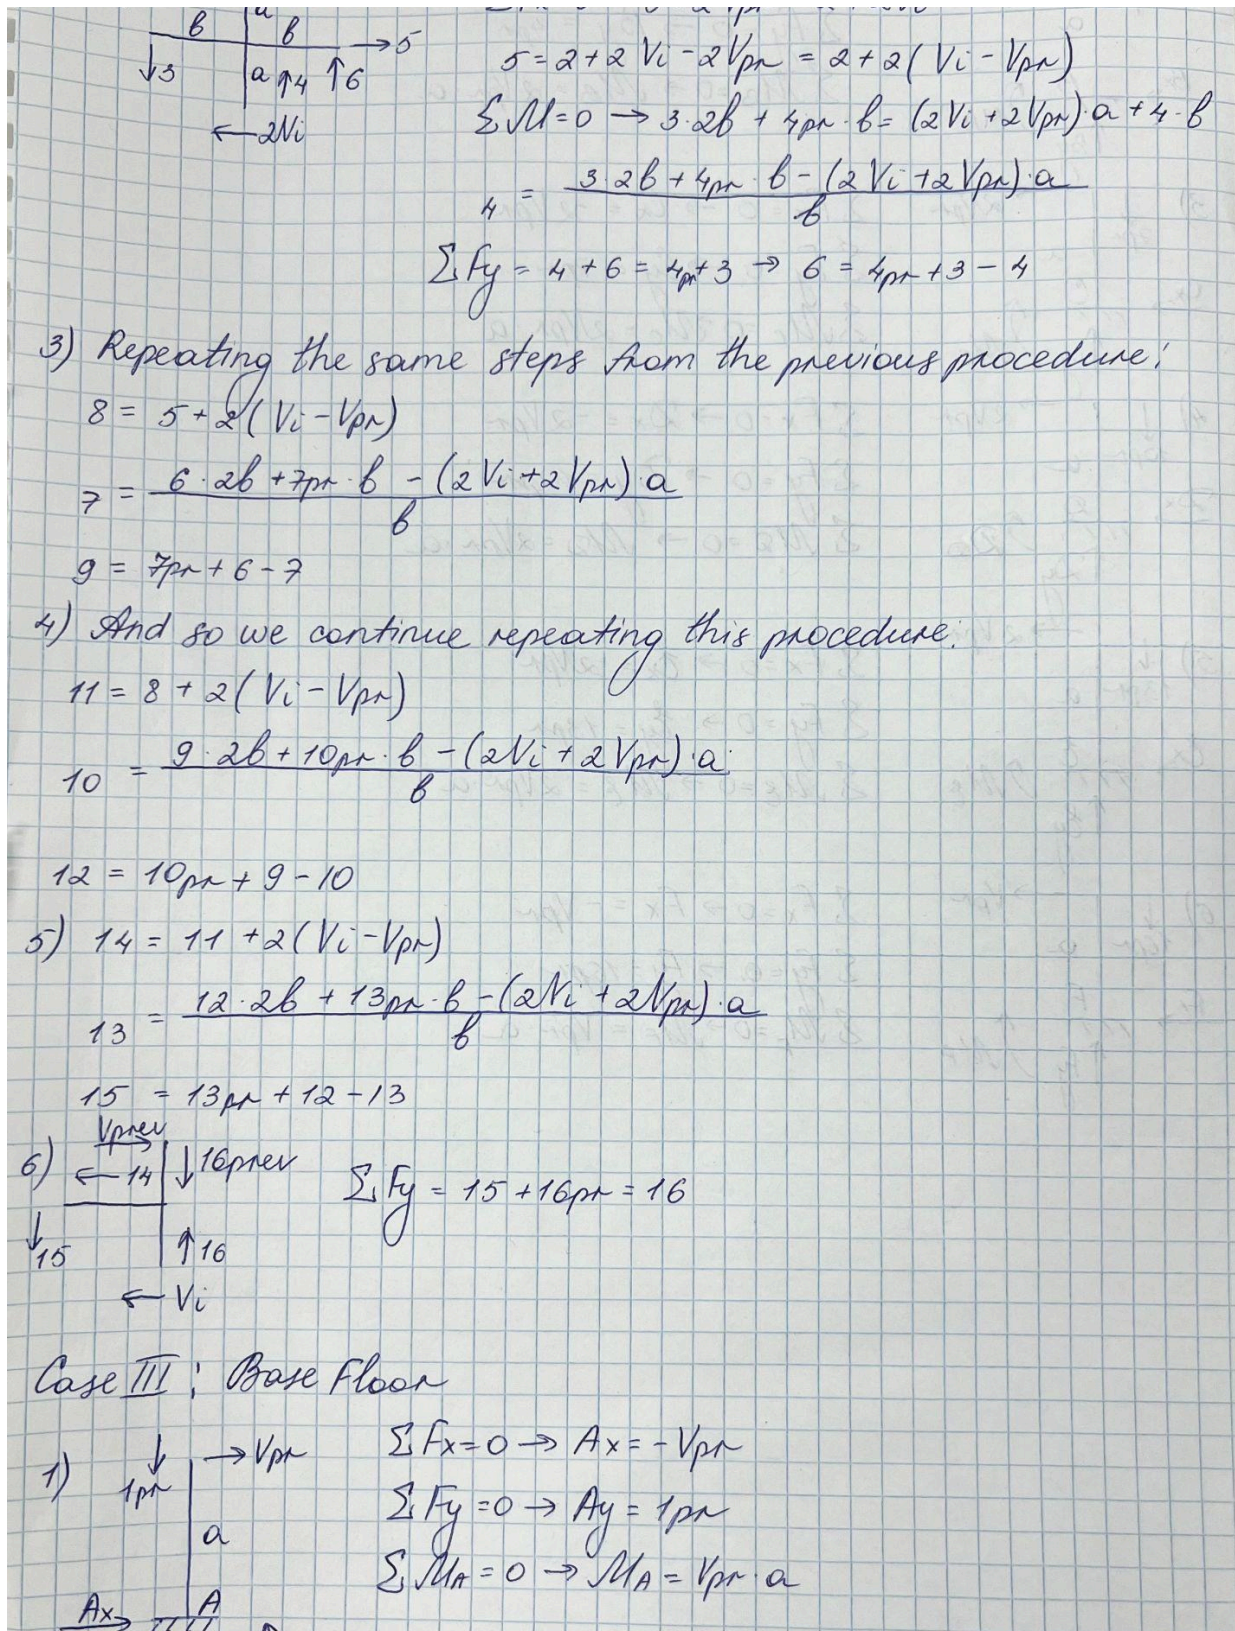 a
b b → 5
5 = 2 + 2Vi - 2Vpr = 2 + 2(Vi - Vpr)
↓3 a ↑4 ↑6
← 2Vi
ΣM=0 → 3·2b + 4pr·b = (2Vi + 2Vpr)·a + 4·b
4 = 3·2b + 4pr·b - (2Vi + 2Vpr)·a
b
ΣFy = 4 + 6 = 4pr + 3 → 6 = 4pr + 3 - 4
3) Repeating the same steps from the previous procedure:
8 = 5 + 2(Vi - Vpr)
7 = 6·2b + 7pr·b - (2Vi + 2Vpr)·a
b
9 = 7pr + 6 - 7
4) And so we continue repeating this procedure:
11 = 8 + 2(Vi - Vpr)
10 = 9·2b + 10pr·b - (2Vi + 2Vpr)·a
b
12 = 10pr + 9 - 10
5) 14 = 11 + 2(Vi - Vpr)
13 = 12·2b + 13pr·b - (2Vi + 2Vpr)·a
b
15 = 13pr + 12 - 13
6) Vprev
← 14 ↓ 16prev
ΣFy = 15 + 16pr = 16
↓15 ↑16
← Vi
Case III: Base Floor
1) ↓ 1pr → Vpr
ΣFx=0 → Ax = -Vpr
ΣFy=0 → Ay = 1pr
a
ΣMA=0 → MA = Vpr·a
Ax A